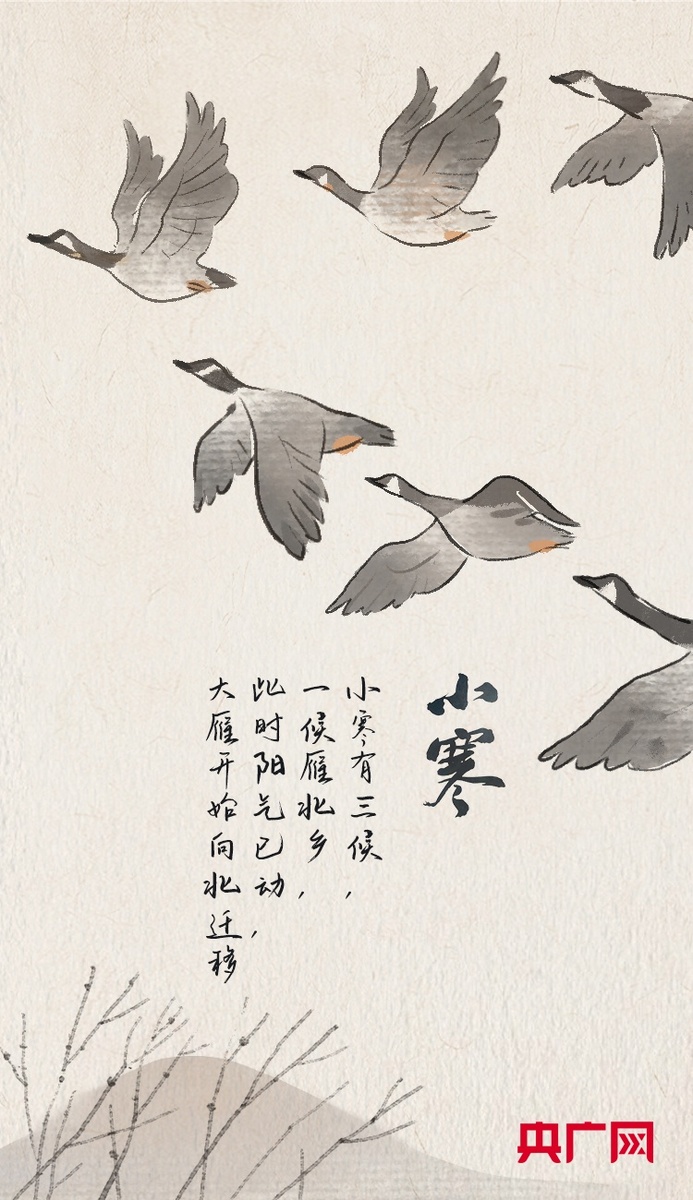 小寒
小寒有三候，
一候雁北乡，
此时阳气已动，
大雁开始向北迁移
央广网